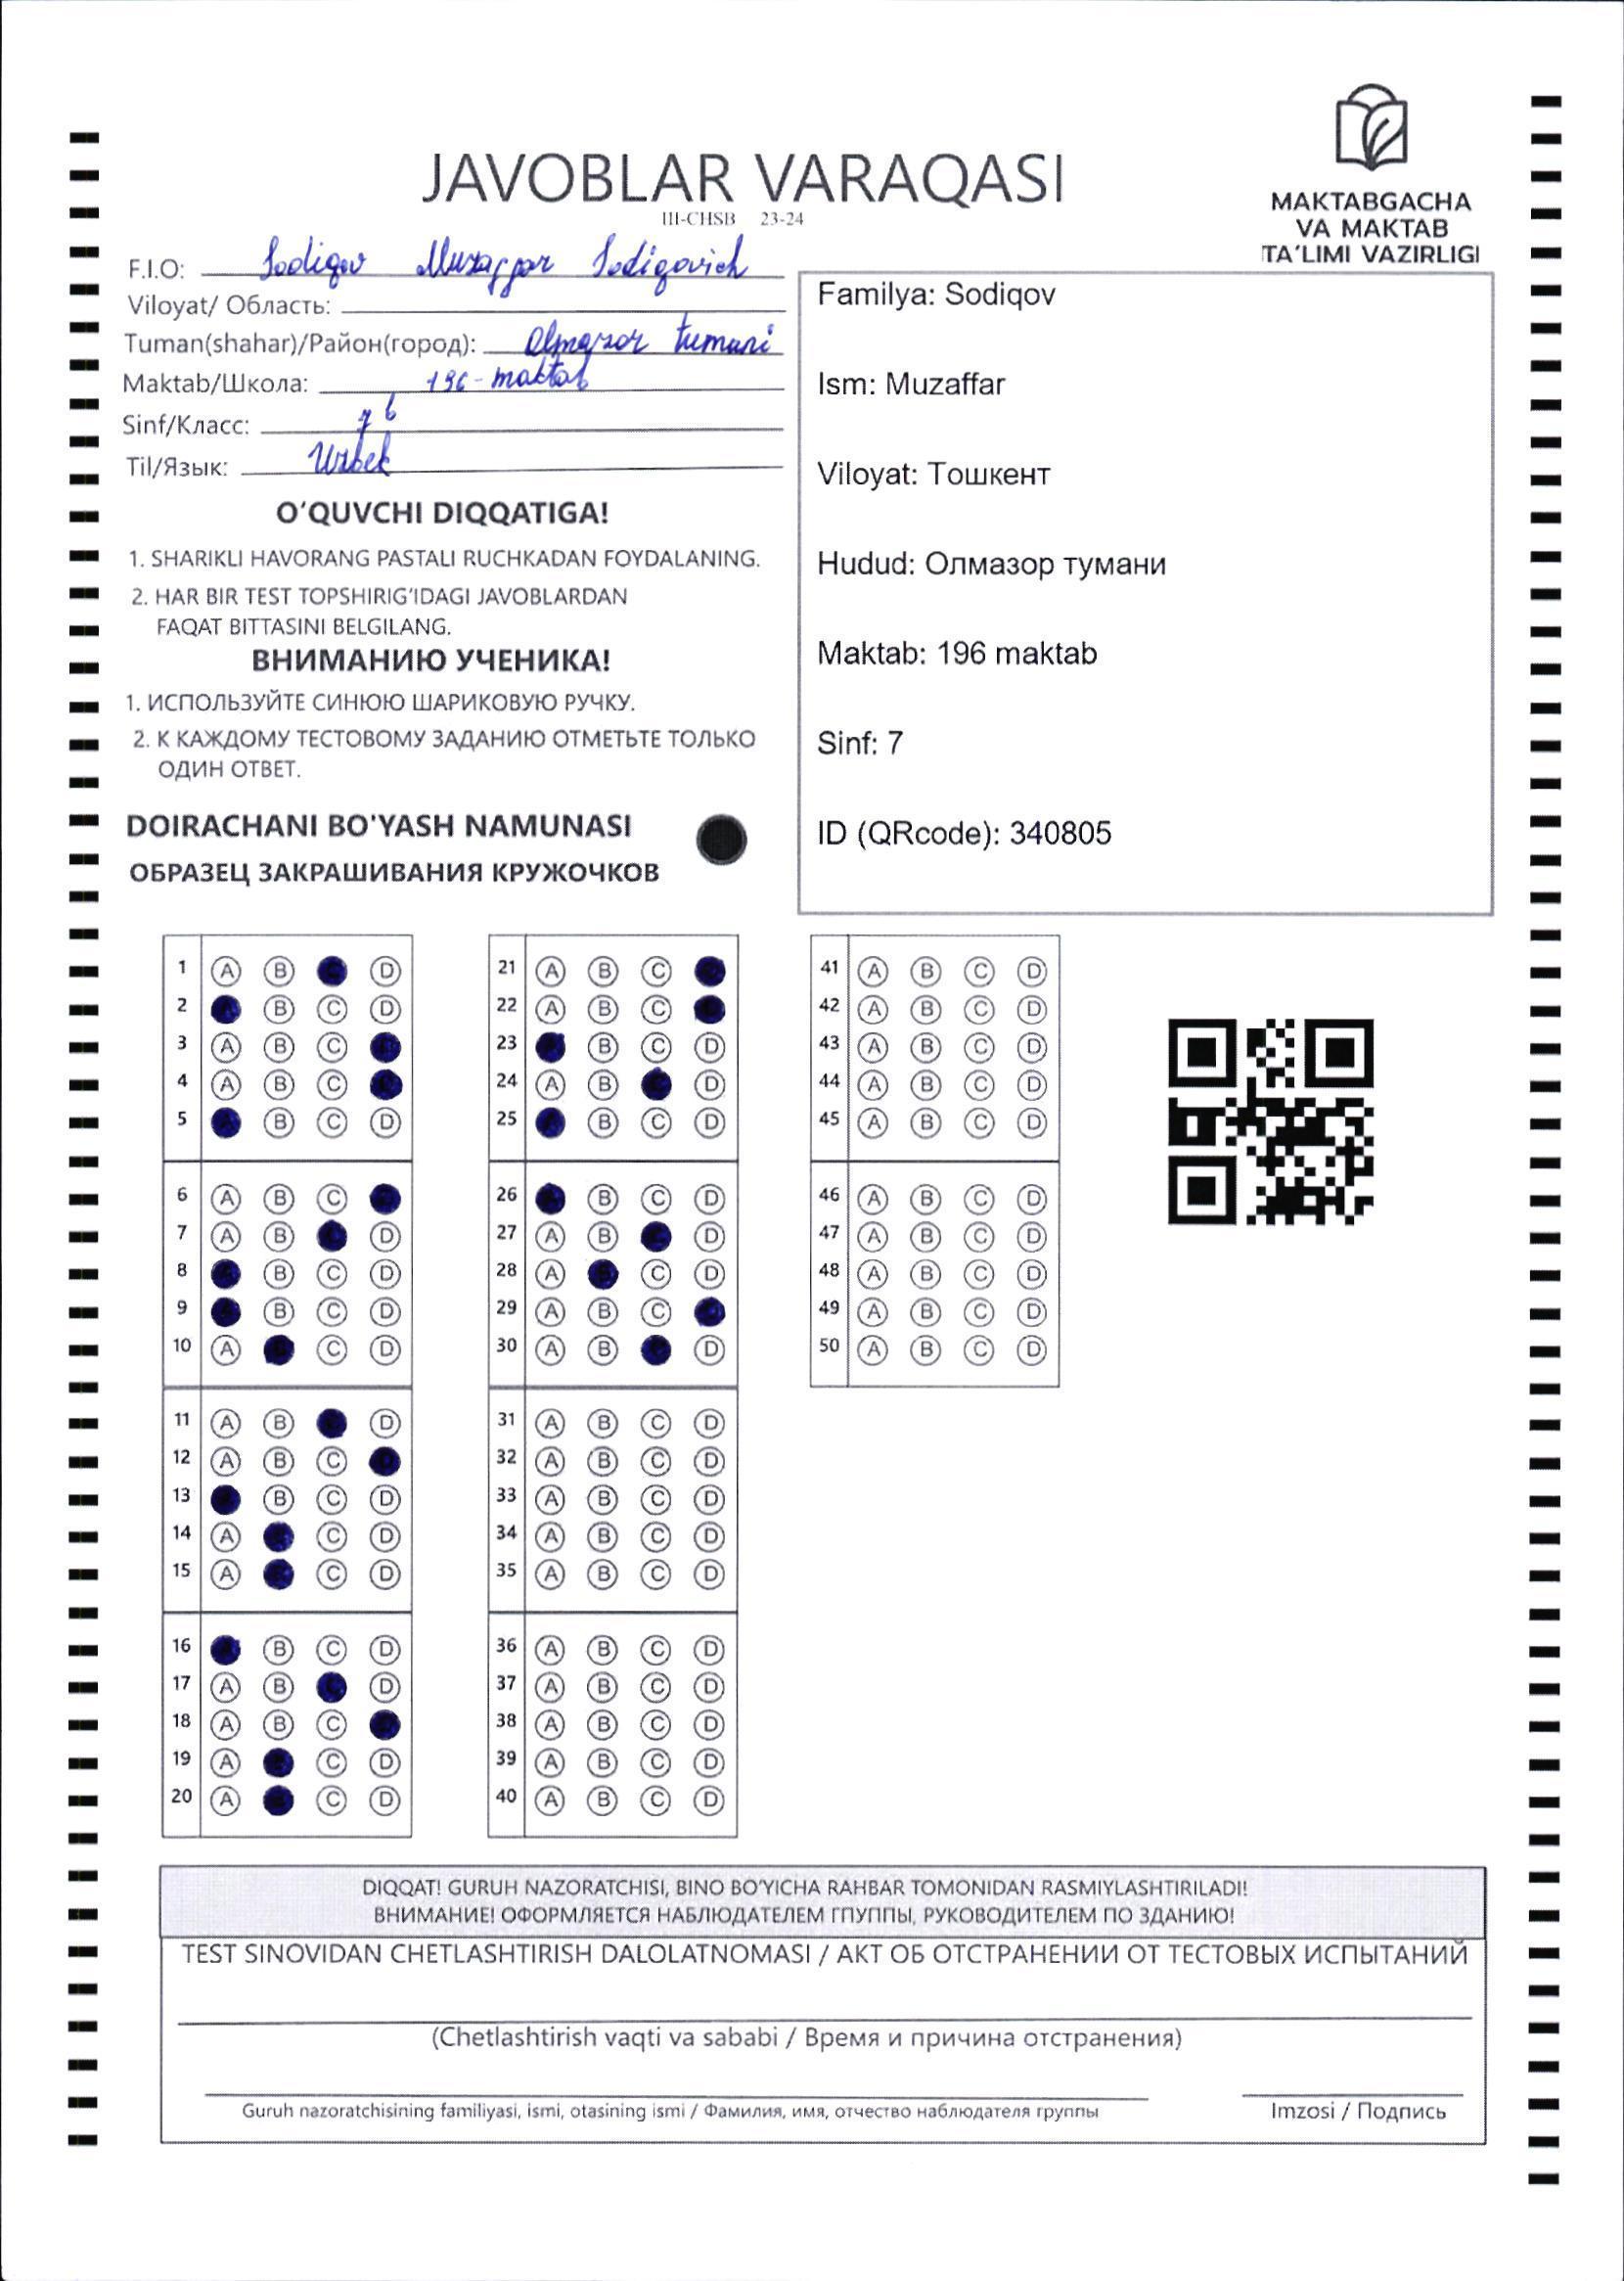 JAVOBLAR VARAQASI
III-CHSB 23-24
MAKTABGACHA
VA MAKTAB
TA'LIMI VAZIRLIGI
F.I.O: Sodiqov Muzaffar Sodiqovich
Viloyat/ Область:
Tuman(shahar)/Район(город): Olmazor tumani
Maktab/Школа: 196-maktab
Sinf/Класс: 7 b
Til/Язык: Uzbek
O'QUVCHI DIQQATIGA!
1. SHARIKLI HAVORANG PASTALI RUCHKADAN FOYDALANING.
2. HAR BIR TEST TOPSHIRIG'IDAGI JAVOBLARDAN
FAQAT BITTASINI BELGILANG.
ВНИМАНИЮ УЧЕНИКА!
1. ИСПОЛЬЗУЙТЕ СИНЮЮ ШАРИКОВУЮ РУЧКУ.
2. К КАЖДОМУ ТЕСТОВОМУ ЗАДАНИЮ ОТМЕТЬТЕ ТОЛЬКО
ОДИН ОТВЕТ.
DOIRACHANI BO'YASH NAMUNASI
ОБРАЗЕЦ ЗАКРАШИВАНИЯ КРУЖОЧКОВ
Familya: Sodiqov
Ism: Muzaffar
Viloyat: Тошкент
Hudud: Олмазор тумани
Maktab: 196 maktab
Sinf: 7
ID (QRcode): 340805
1 A B D
2 B C D
3 A B C
4 A B C
5 B C D
6 A B C
7 A B D
8 B C D
9 B C D
10 A C D
11 A B D
12 A B C
13 B C D
14 A C D
15 A C D
16 B C D
17 A B D
18 A B C
19 A C D
20 A C D
21 A B C
22 A B C
23 B C D
24 A B D
25 B C D
26 B C D
27 A B D
28 A C D
29 A B C
30 A B D
31 A B C D
32 A B C D
33 A B C D
34 A B C D
35 A B C D
36 A B C D
37 A B C D
38 A B C D
39 A B C D
40 A B C D
41 A B C D
42 A B C D
43 A B C D
44 A B C D
45 A B C D
46 A B C D
47 A B C D
48 A B C D
49 A B C D
50 A B C D
DIQQAT! GURUH NAZORATCHISI, BINO BO'YICHA RAHBAR TOMONIDAN RASMIYLASHTIRILADI!
ВНИМАНИЕ! ОФОРМЛЯЕТСЯ НАБЛЮДАТЕЛЕМ ГПУППЫ, РУКОВОДИТЕЛЕМ ПО ЗДАНИЮ!
TEST SINOVIDAN CHETLASHTIRISH DALOLATNOMASI / АКТ ОБ ОТСТРАНЕНИИ ОТ ТЕСТОВЫХ ИСПЫТАНИЙ
(Chetlashtirish vaqti va sababi / Время и причина отстранения)
Guruh nazoratchisining familiyasi, ismi, otasining ismi / Фамилия, имя, отчество наблюдателя группы
Imzosi / Подпись